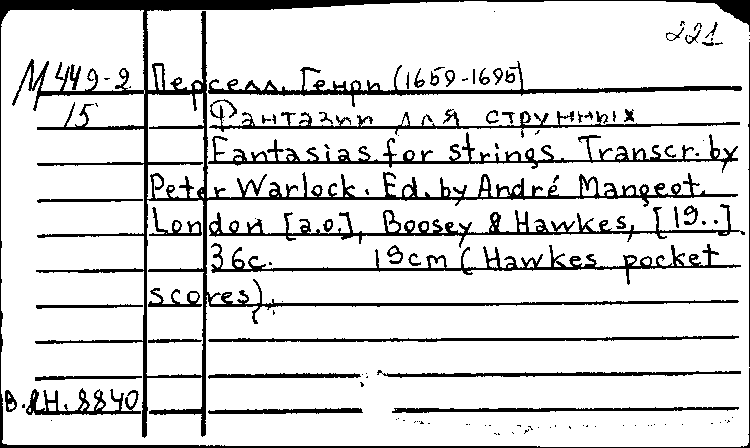 221
М 449-2 Перселл, Генри (1659-1695)
15 Фантазии для струнных
Fantasias for strings. Transcr. by
Peter Warlock. Ed. by André Mangeot.
London [a.o.], Boosey & Hawkes, [19..].
36с. 19cm (Hawkes pocket
scores).
8840